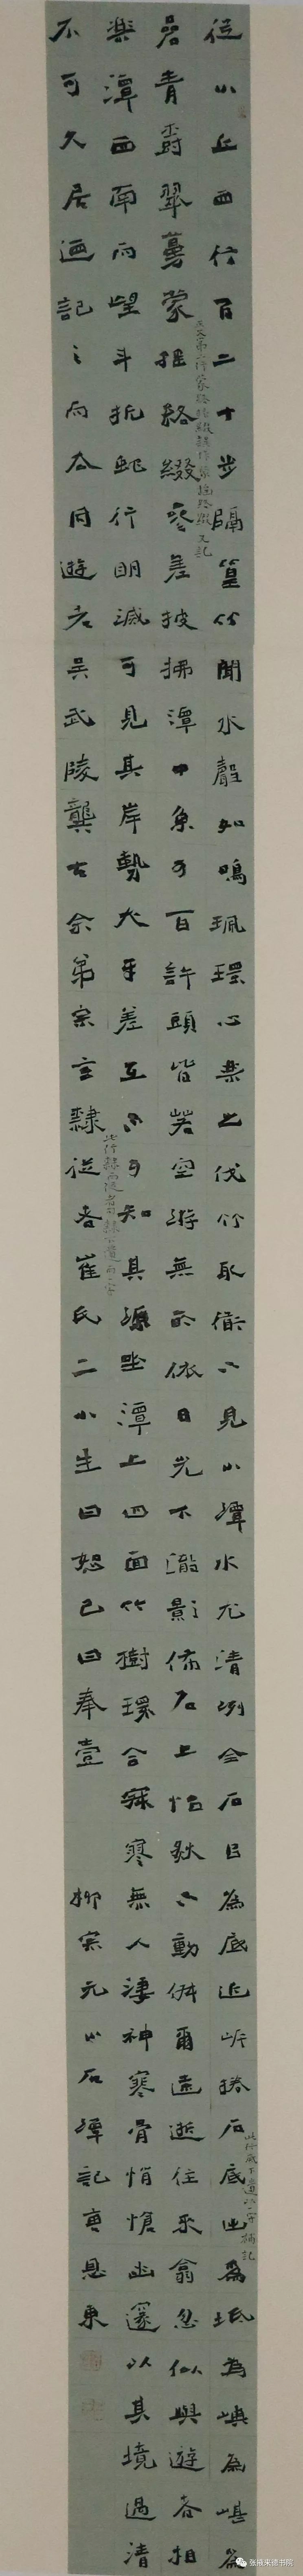 從小丘西行百二十步隔篁竹聞水聲如鳴珮環心樂之伐竹取衜下見小潭水尤清冽全石㠯為底近岸捲石底出為坻為嶼為嵁為
嵒青樹翠蔓蒙搖絡綴參差披拂潭中魚可百許頭皆若空游無所依日光下澈影佈石上怡然不動俶爾遠逝往來翕忽似與遊者相
樂潭西南而望斗折蛇行明滅可見其岸勢犬牙差互不可知其源坐潭上四面竹樹環合寂寥無人淒神寒骨悄愴幽邃以其境過清
不可久居迺記之而去同遊者吳武陵龔古余弟宗玄隸從者崔氏二小生曰恕己曰奉壹
柳宗元小石潭記
張掖朱德书院